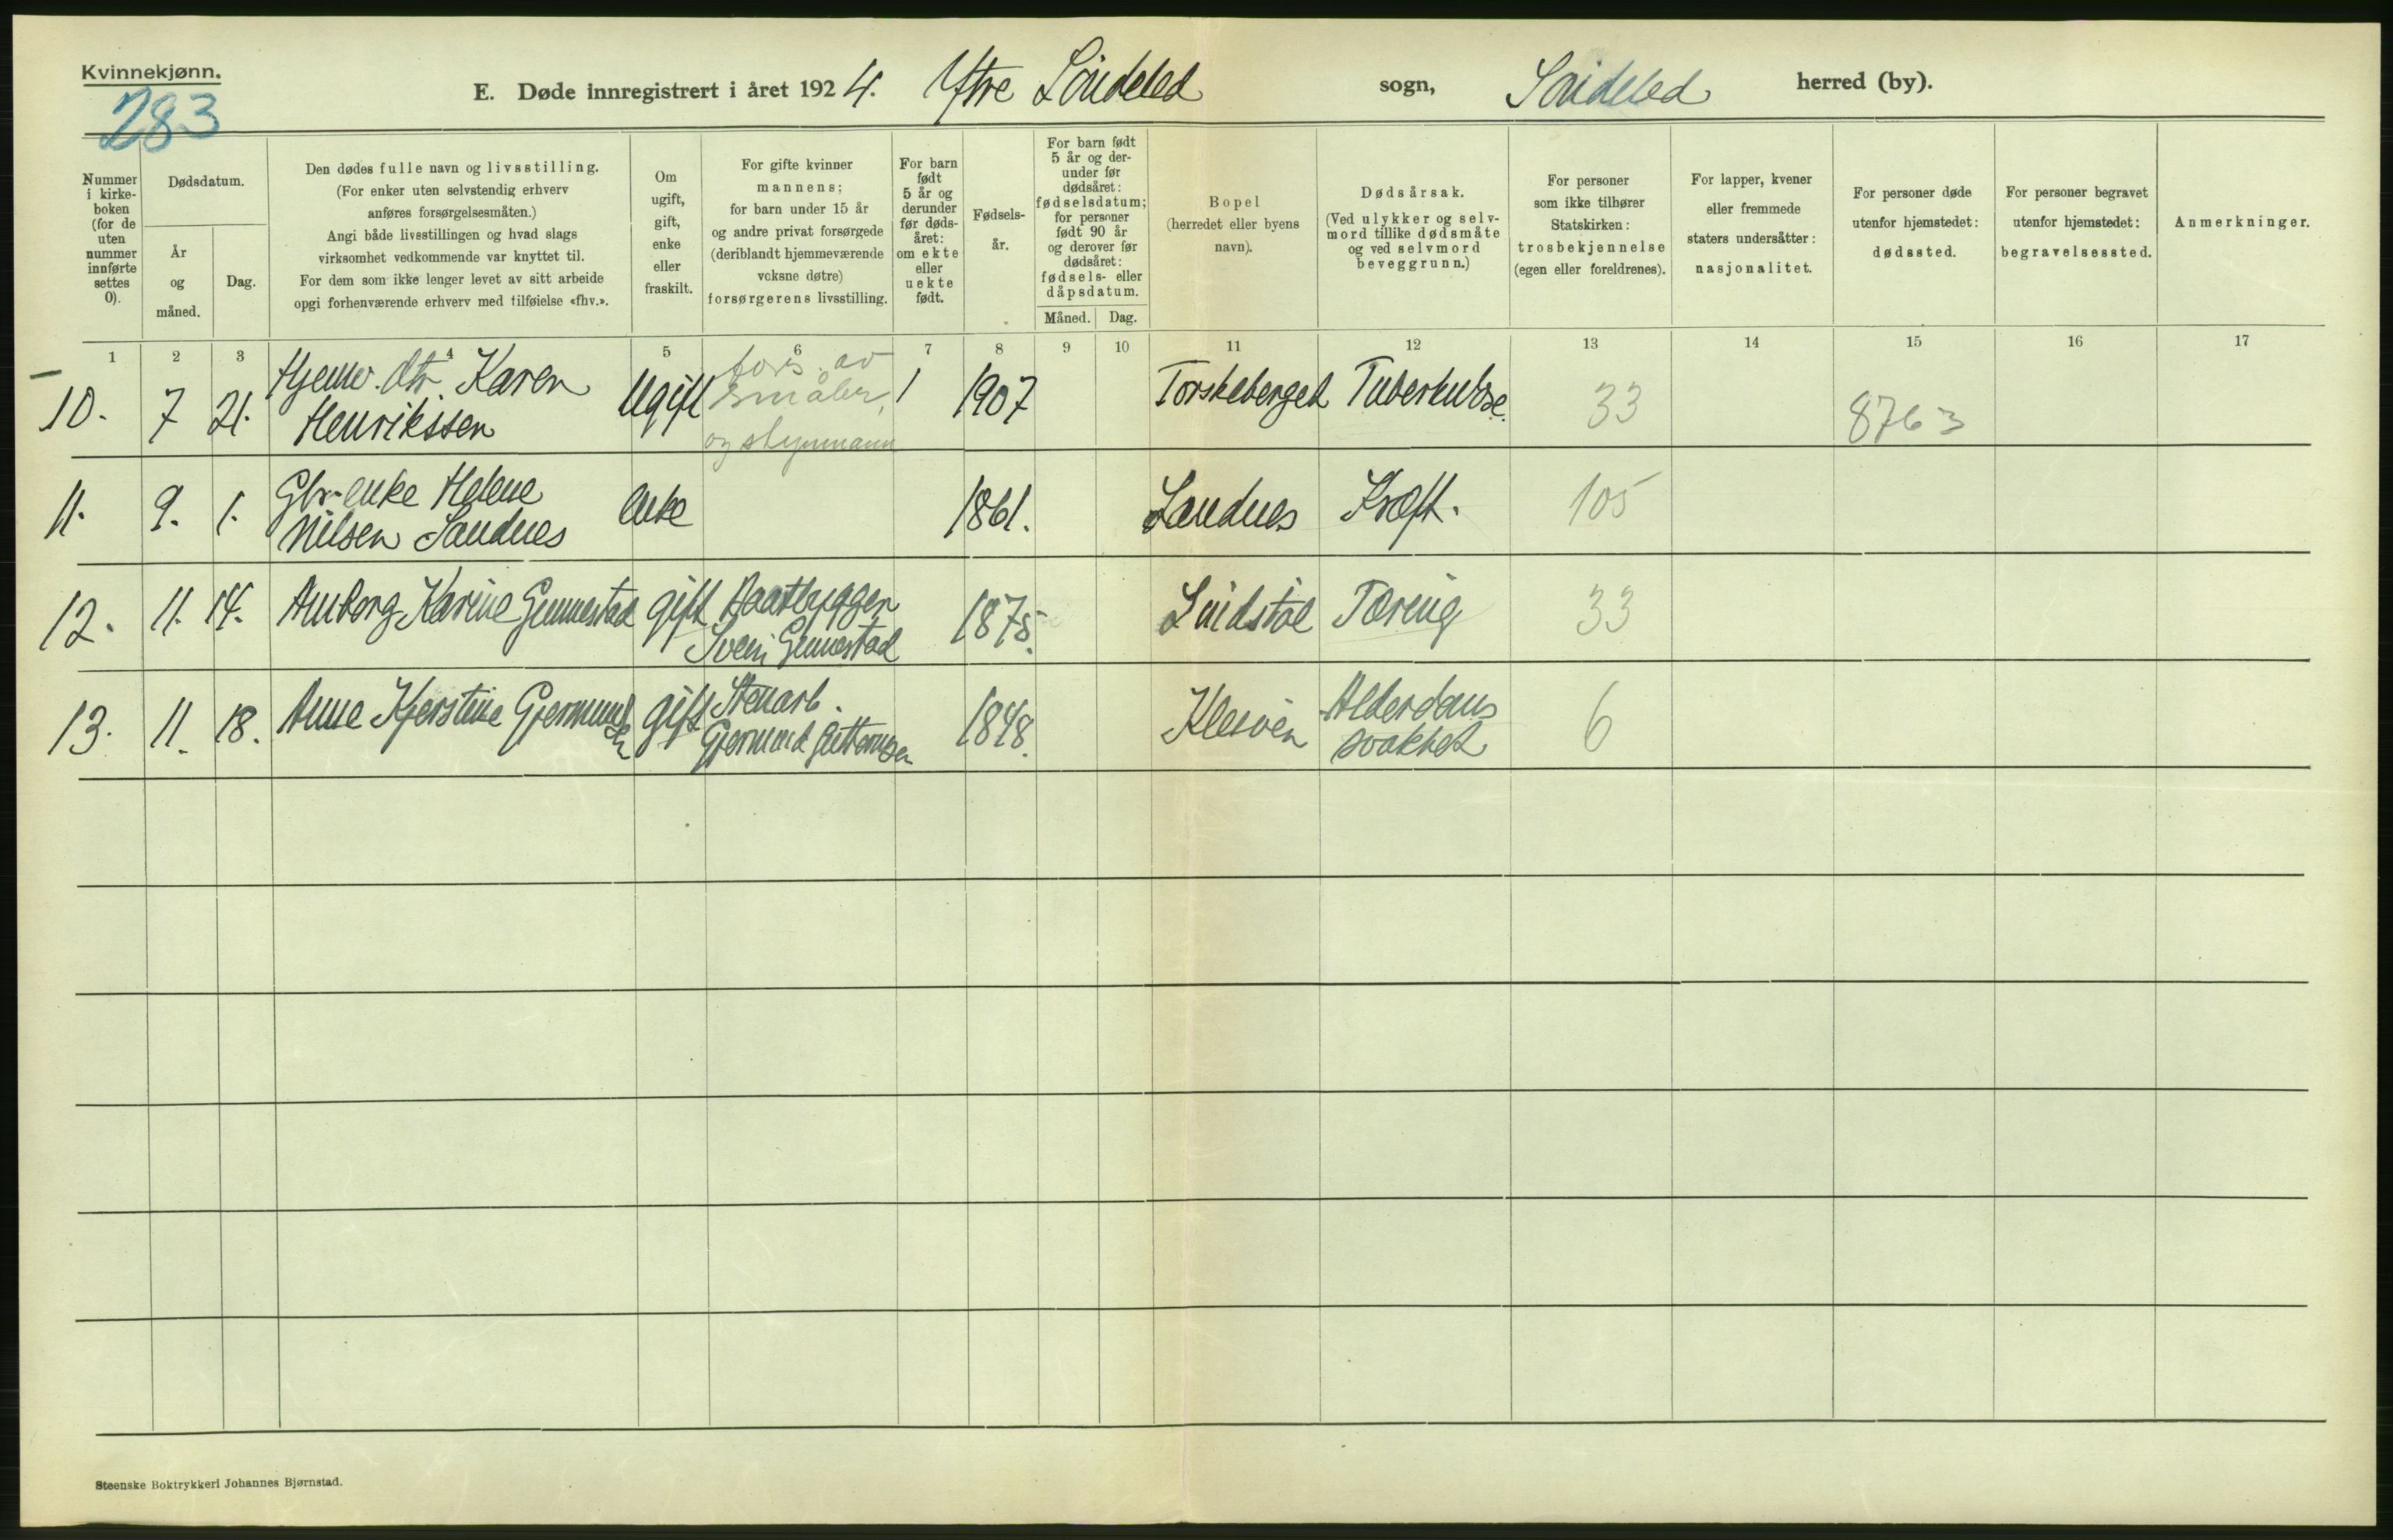 Kvinnekjønn.
283
E. Døde innregistrert i året 1924. Ytre Söndeled sogn, Söndeled herred (by).
Nummer i kirke-boken (for de uten nummer innførte settes 0).
Dødsdatum.
År og måned.
Dag.
Den dødes fulle navn og livsstilling.
(For enker uten selvstendig erhverv
anføres forsørgelsesmåten.)
Angi både livsstillingen og hvad slags
virksomhet vedkommende var knyttet til.
For dem som ikke lenger levet av sitt arbeide
opgi forhenværende erhverv med tilføielse «fhv.».
Om ugift, gift, enke eller fraskilt.
For gifte kvinner
mannens;
for barn under 15 år
og andre privat forsørgede
(deriblandt hjemmeværende
voksne døtre)
forsørgerens livsstilling.
For barn født 5 år og derunder før døds-året: om ekte eller uekte født.
Fødsels-år.
For barn født 5 år og der-under før dødsåret: fødselsdatum; for personer født 90 år og derover før dødsåret: fødsels- eller dåpsdatum.
Måned.
Dag.
Bopel
(herredet eller byens
navn).
Dødsårsak.
(Ved ulykker og selv-
mord tillike dødsmåte
og ved selvmord
beveggrunn.)
For personer
som ikke tilhører
Statskirken:
trosbekjennelse
(egen eller foreldrenes).
For lapper, kvener
eller fremmede
staters undersåtter:
nasjonalitet.
For personer døde
utenfor hjemstedet:
dødssted.
For personer begravet
utenfor hjemstedet:
begravelsessted.
Anmerkninger.
1 2 3 4 5 6 7 8 9 10 11 12 13 14 15 16 17
10. 7 21. Hjemv. dtr. Karen Henrikssen Ugift fors. av småbr. og styrmann 1 1907 Torskeberget Tuberkulose. 33 8763
11. 9. 1. Gbr-enke Helene Nilsen Sandnes Enke 1861. Sandnes Kræft. 105
12. 11. 14. Karine Gunnestad gift Baatbygger Svein Gunnestad 1875. Tæring 33
13. 11. 18. Anne Kjerstine Gjermunds gift Stenarb. Gjermund Guttormsen 1848. Alderdomssvakhet 6
Steenske Boktrykkeri Johannes Bjørnstad.